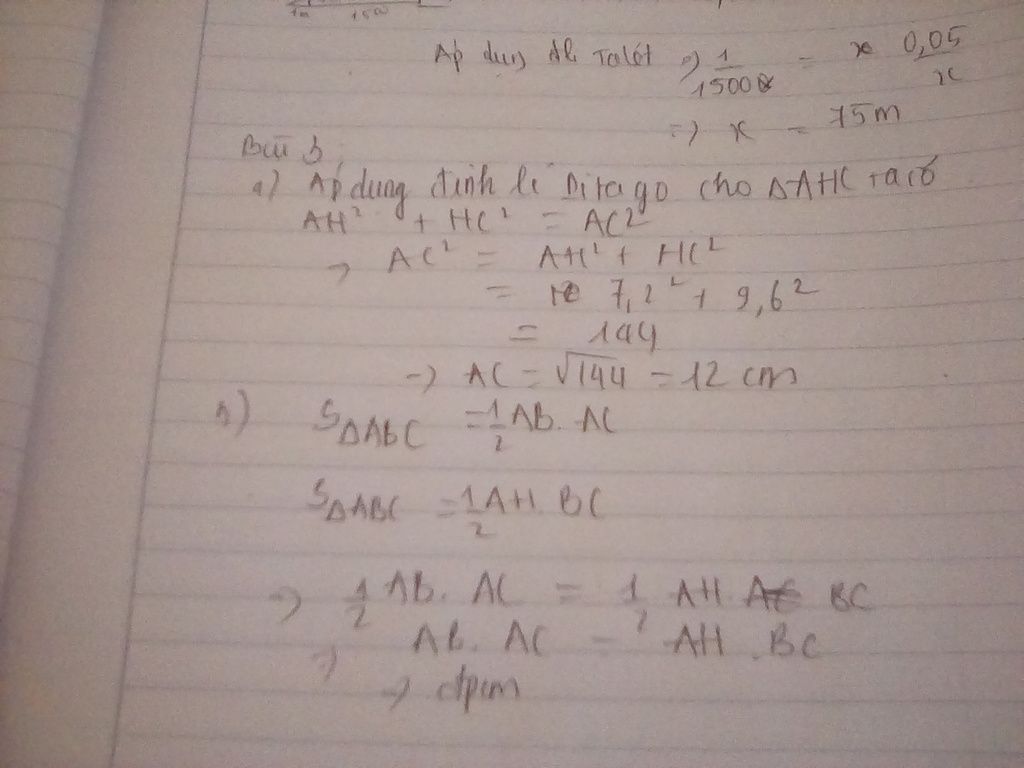 1m 150
Áp dụng đl Talét => 1/1500 = 0,05/x
=> x = 75m
Bài 3:
a) Áp dụng định lí Pitago cho ΔAHC ta có
AH² + HC² = AC²
=> AC² = AH² + HC²
= 7,2² + 9,6²
= 144
=> AC = √144 = 12 cm
b) SΔABC = 1/2 AB. AC
SΔABC = 1/2 AH. BC
=> 1/2 AB. AC = 1/2 AH. BC
=> AB. AC = AH . BC
=> đpcm